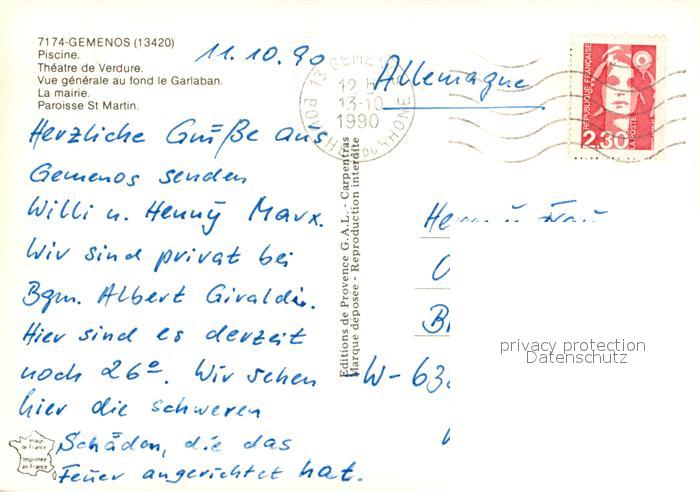 7174-GEMENOS (13420)
Piscine.
Théatre de Verdure.
Vue générale au fond le Garlaban.
La mairie.
Paroisse St Martin.
11.10.90
Allemagne
13 GEMENOS
12 H
13-10
1990
BOUCHES DU RHONE
REPUBLIQUE FRANÇAISE
2.30
LA POSTE
Herzliche Grüße aus
Gemenos senden
Willi u. Henny Marx.
Wir sind privat bei
Bgm. Albert Giraldi.
Hier sind es derzeit
noch 26°. Wir sehen
hier die schweren
Schäden, die das
Feuer angerichtet hat.
Editions de Provence G.A.L. - Carpentras
Marque déposée - Reproduction interdite
Herrn u. Frau
W-63
privacy protection
Datenschutz
Image
de France
Imprimée
en France